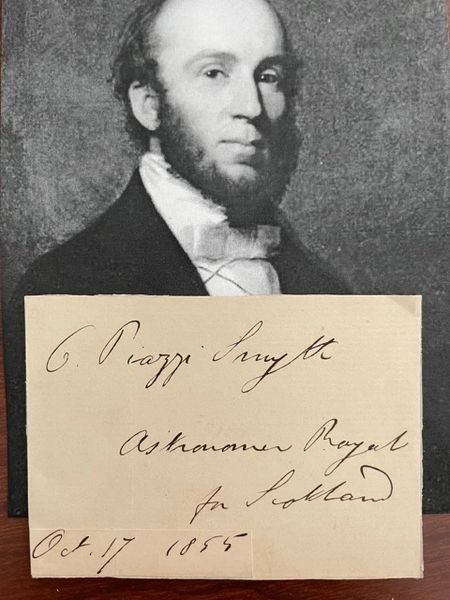 C. Piazzi Smyth
Astronomer Royal
for Scotland
Oct. 17 1855